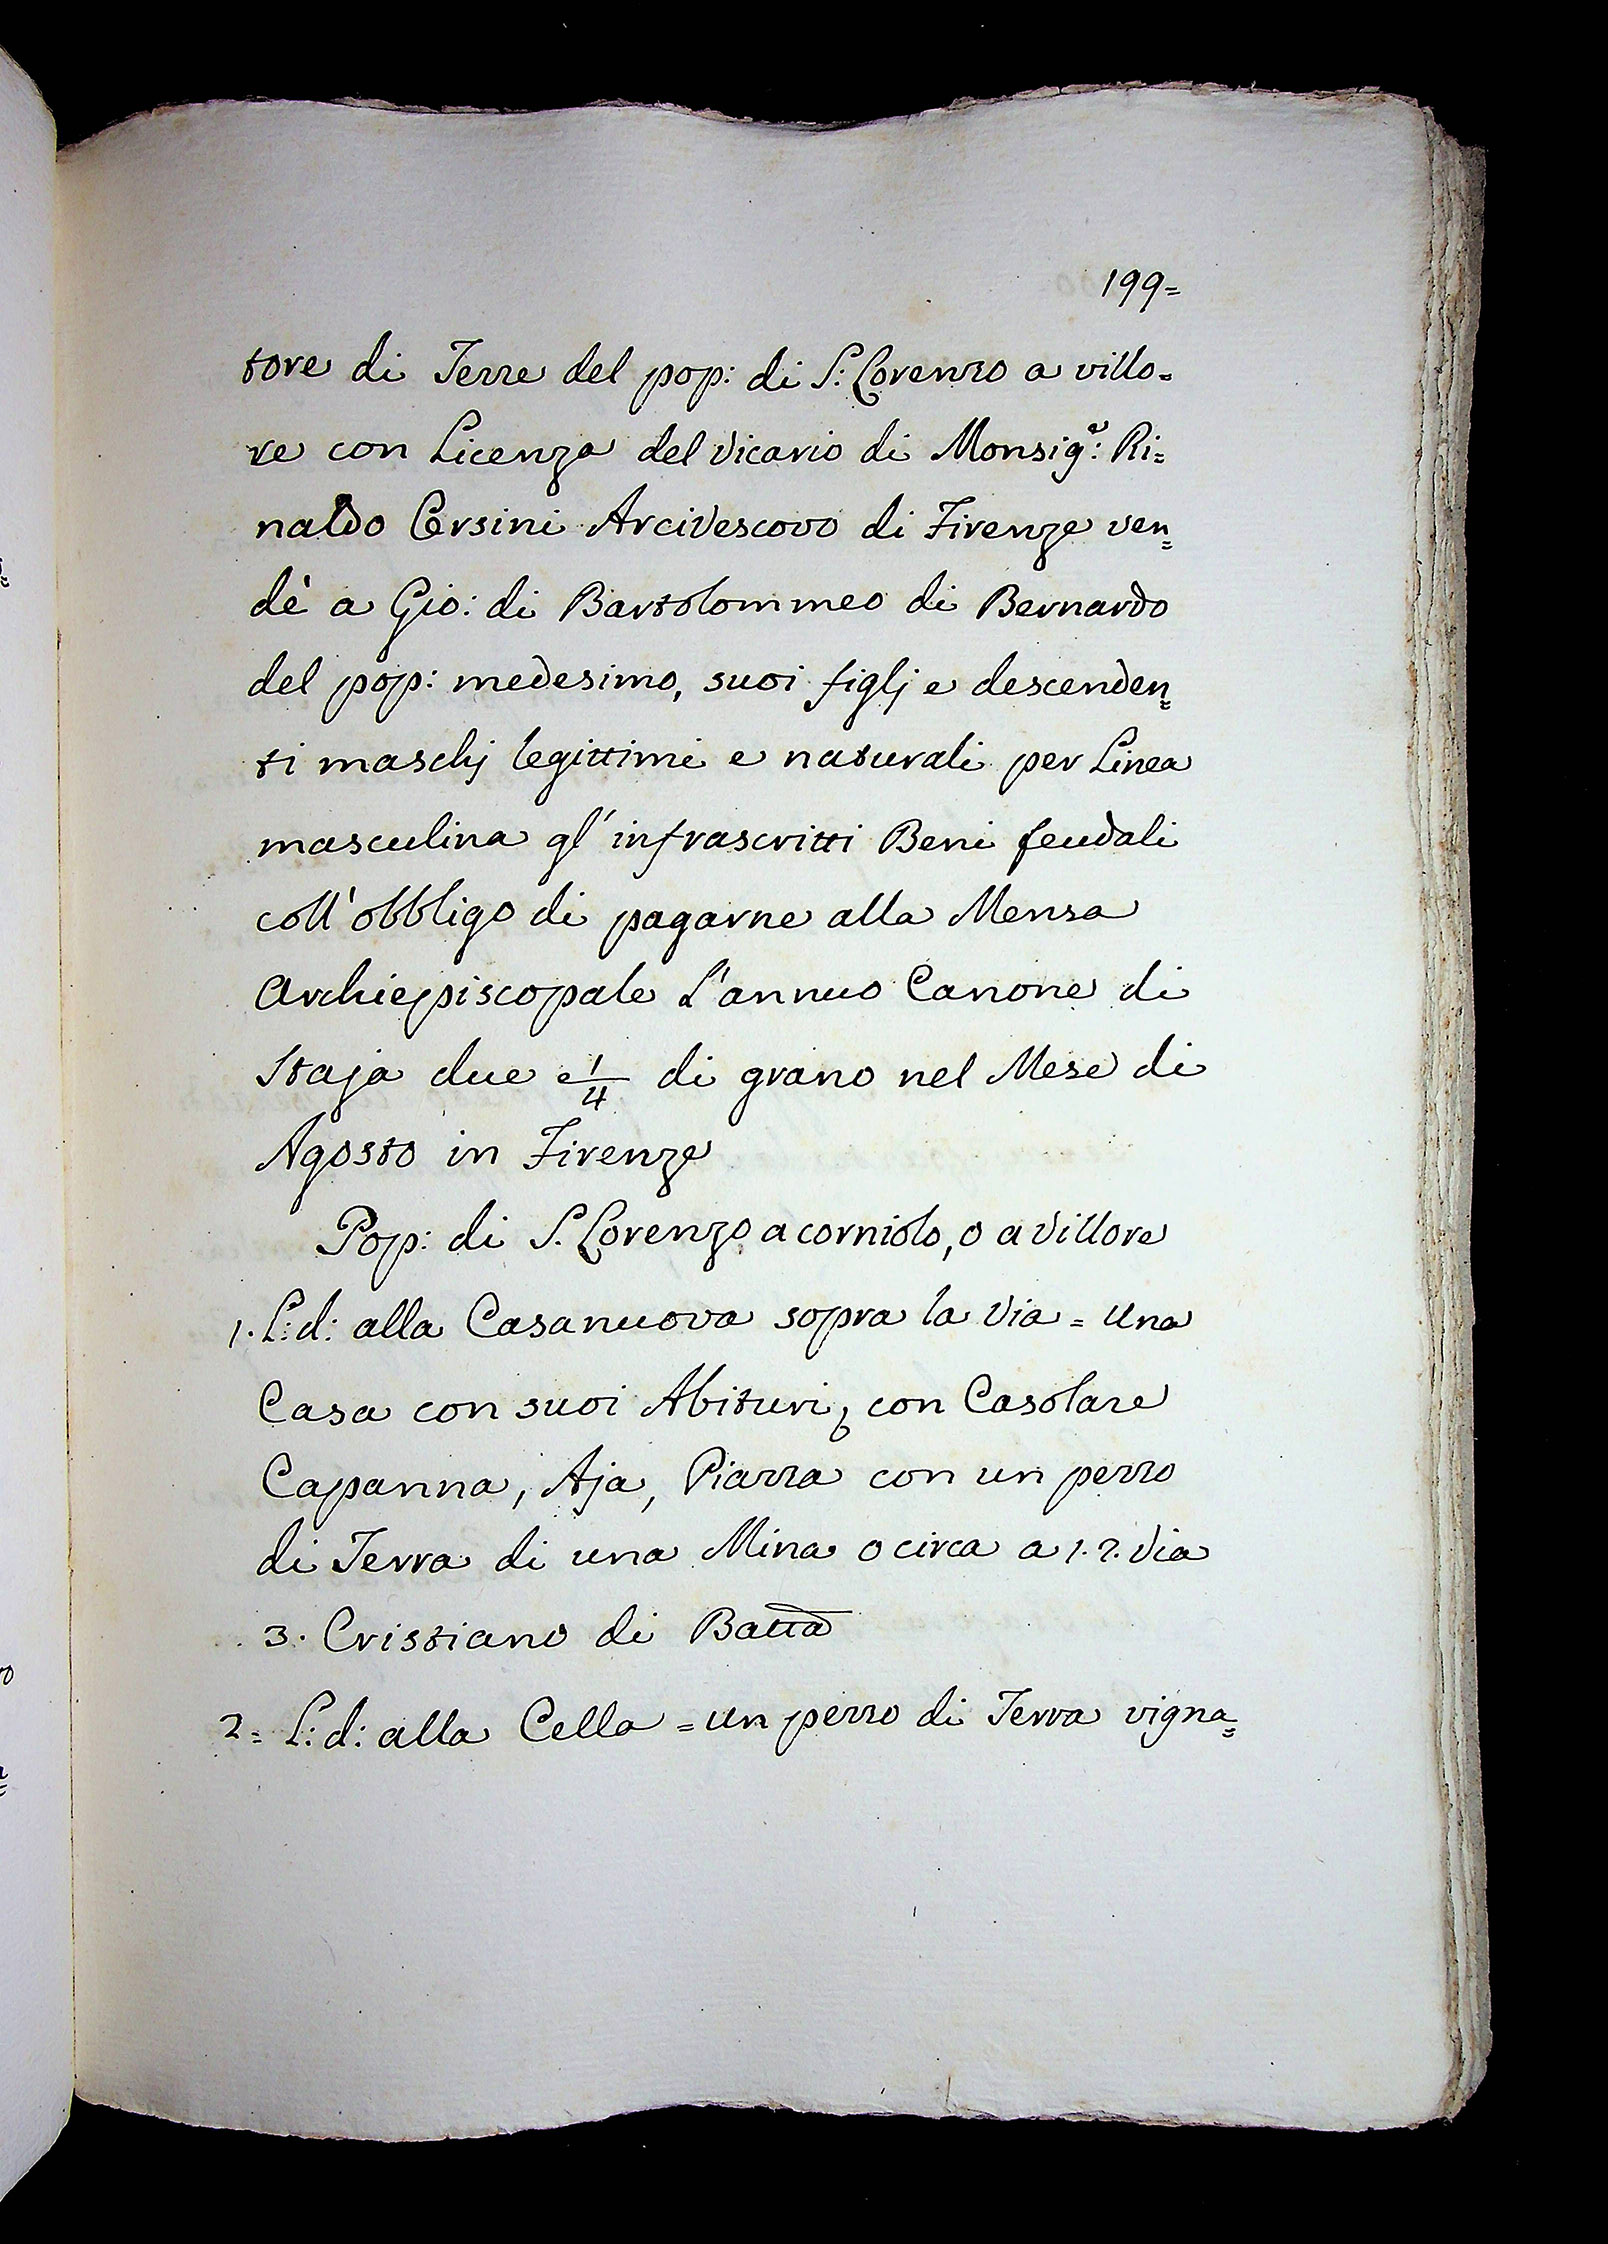 199=
tore di Terre del pop: di S: Lorenzo a villo=
re con Licenza del Vicario di Monsig.e: Ri=
naldo Orsini Arcivescovo di Firenze ven=
dè a Gio: di Bartolommeo di Bernardo
del pop: medesimo, suoi figlj e descenden=
ti maschj legittimi e naturali per Linea
masculina gl'infrascritti Beni feudali
coll'obbligo di pagarne alla Mensa
Archiepiscopale L'annuo Canone di
Staja due e 1/4 di grano nel Mese di
Agosto in Firenze
Pop: di S. Lorenzo a corniolo, o a Villore
1. L: d: alla Casanuova sopra la Via = Una
Casa con suoi Abituri, con Casolare
Capanna, Aja, Piazza con un pezzo
di Terra di una Mina o circa a 1. 2. Via
3. Cristiano di Batta
2= L: d: alla Cella = un pezzo di Terra vigna=